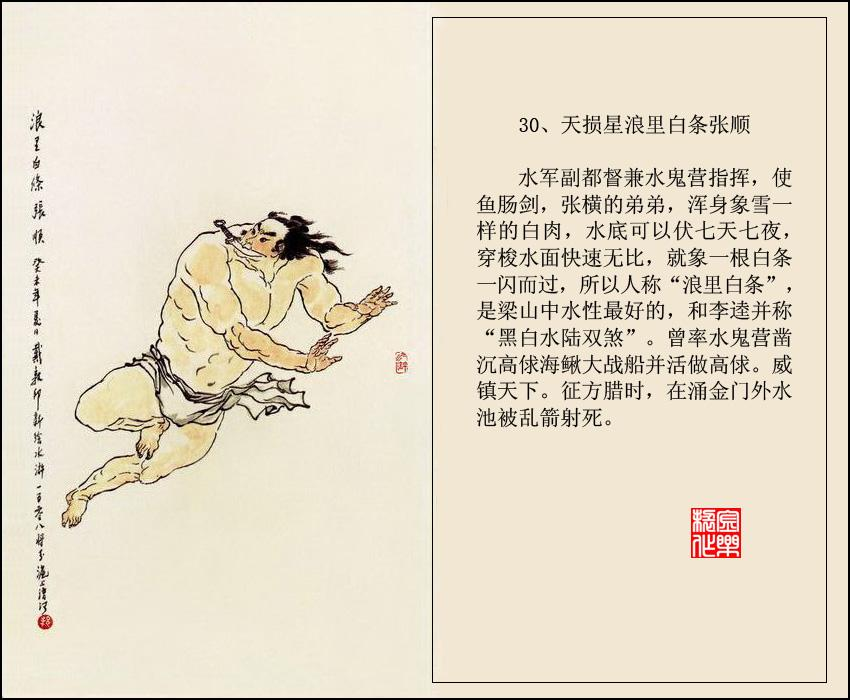 浪里白條張順 癸未年夏日戴敦邦新繪水滸一百零八將於滬上
30、天损星浪里白条张顺
水军副都督兼水鬼营指挥，使
鱼肠剑，张横的弟弟，浑身象雪一
样的白肉，水底可以伏七天七夜，
穿梭水面快速无比，就象一根白条
一闪而过，所以人称“浪里白条”，
是梁山中水性最好的，和李逵并称
“黑白水陆双煞”。曾率水鬼营凿
沉高俅海鳅大战船并活做高俅。威
镇天下。征方腊时，在涌金门外水
池被乱箭射死。